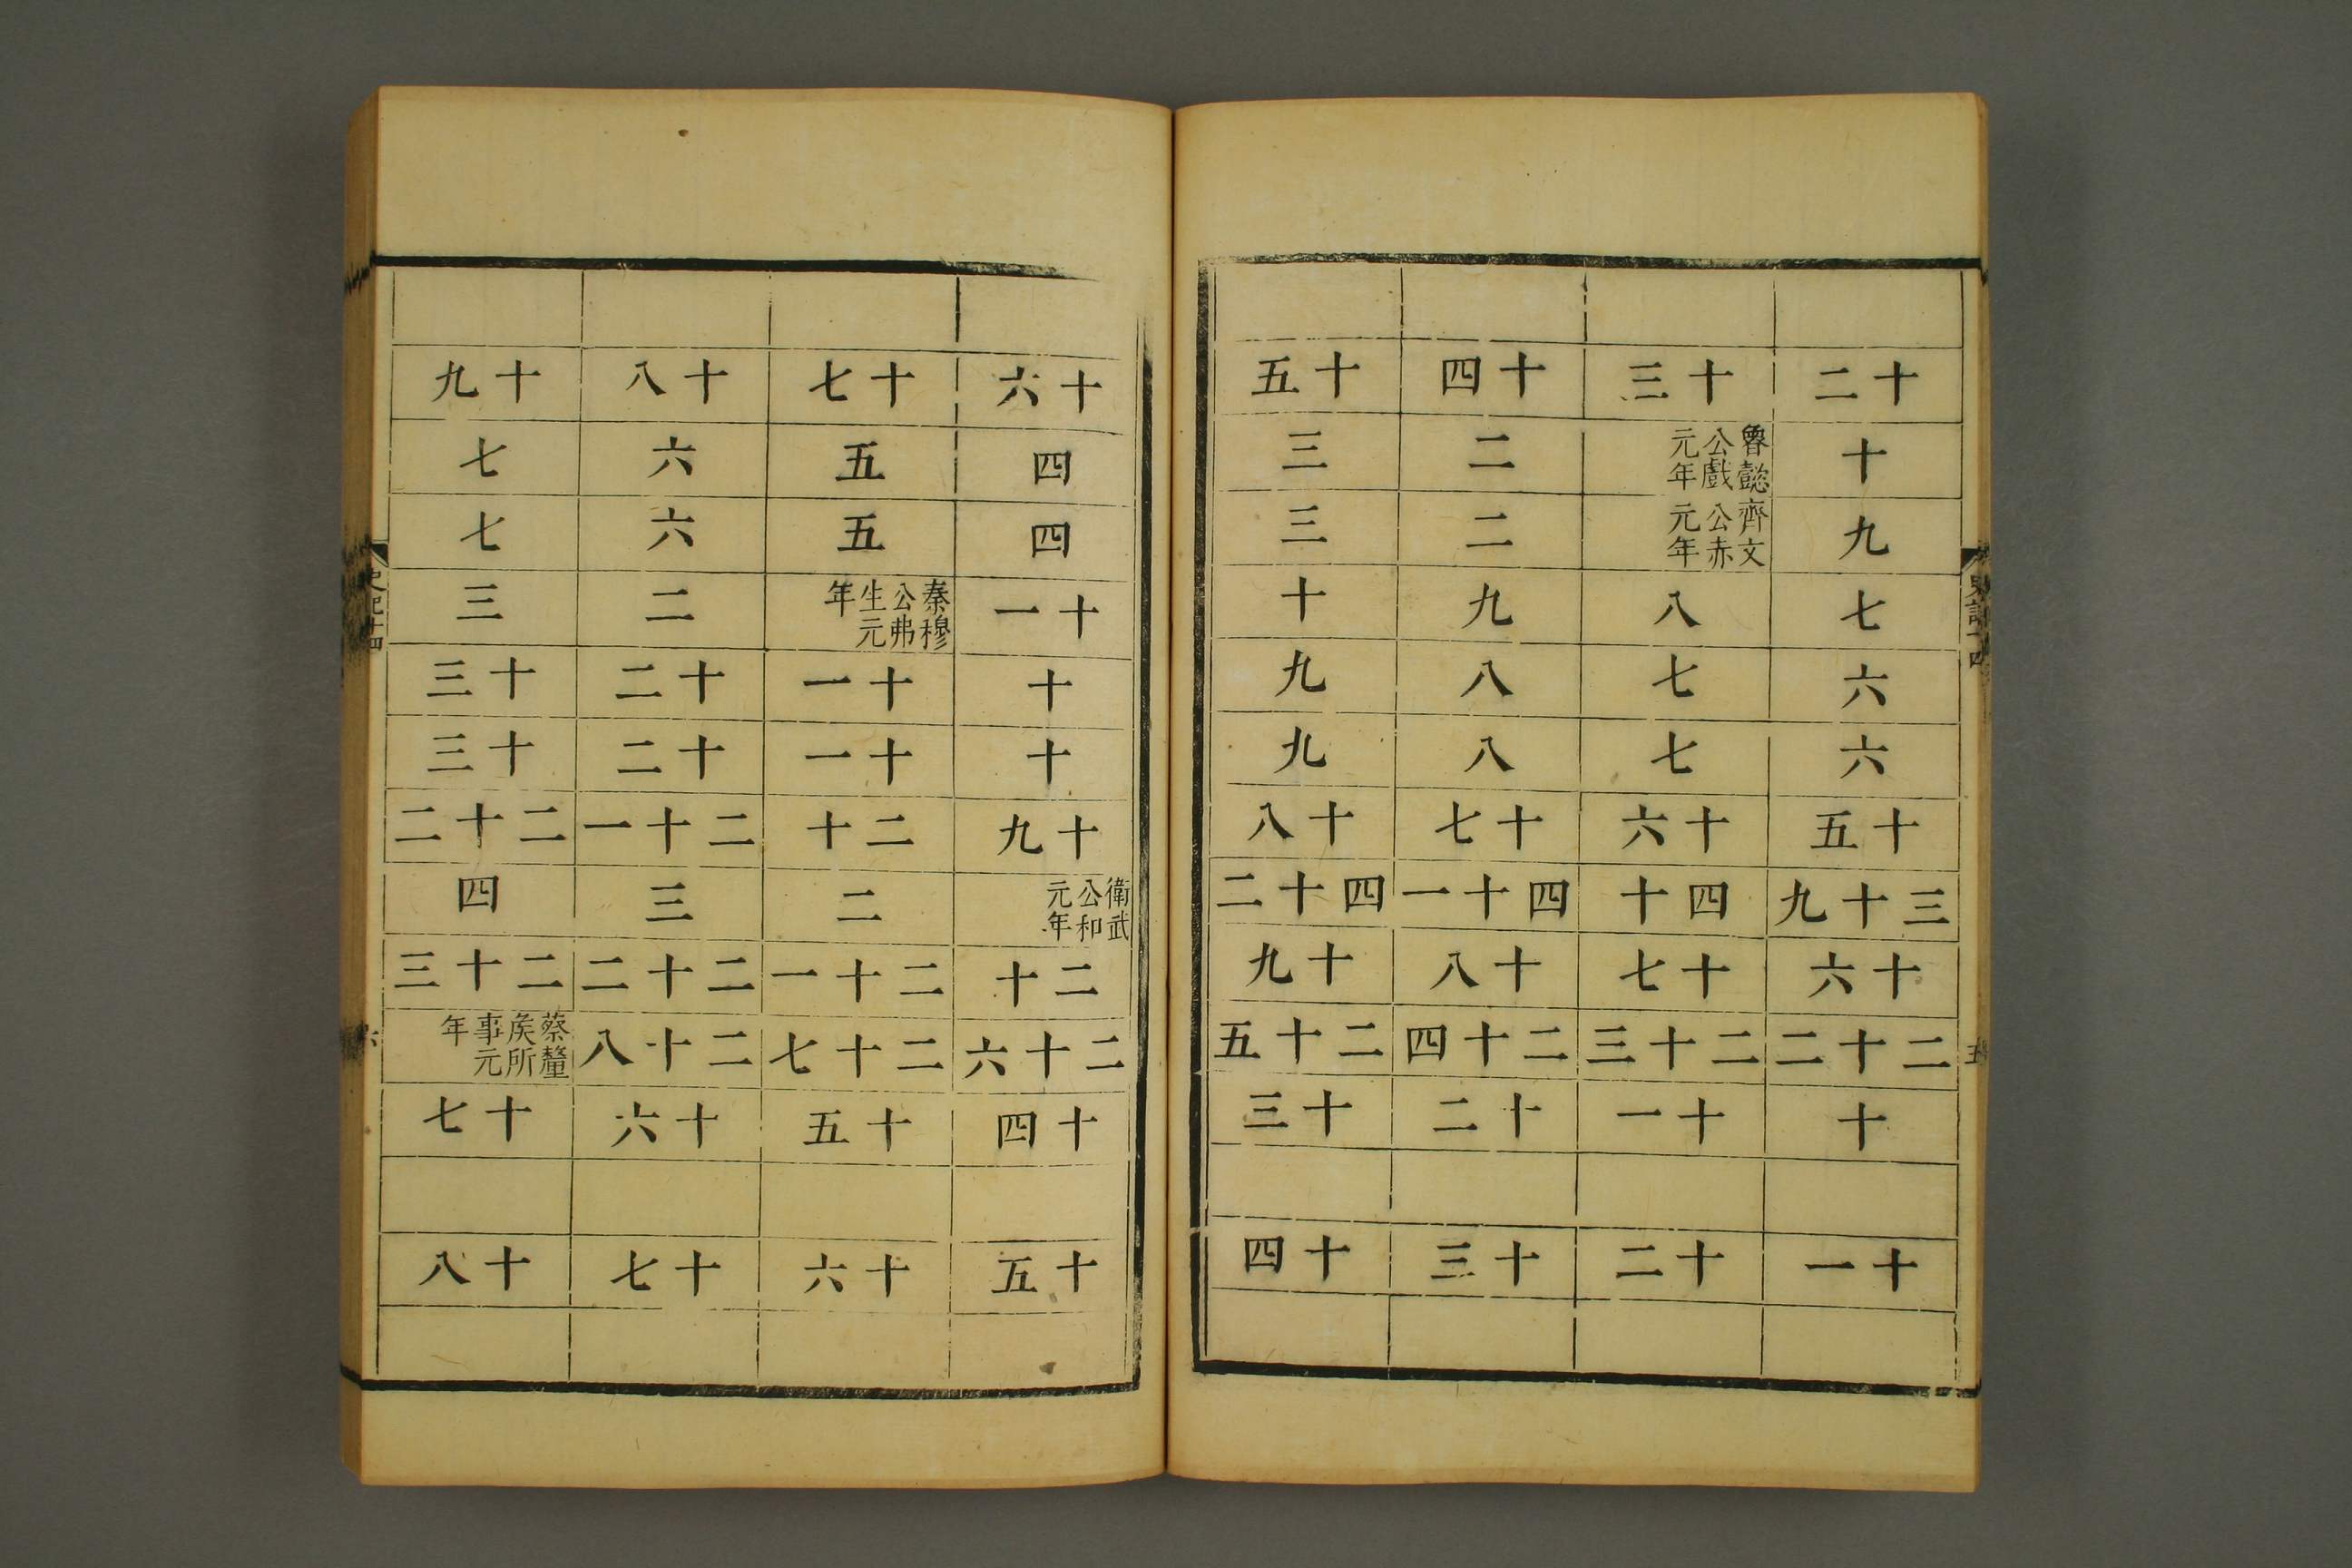 史記十四
五
十二
十
九
七
六
六
十五
三十九
十六
二十二
十
十一
十三
魯懿
公戲
元年
齊文
公赤
元年
八
七
七
十六
四十
十七
二十三
十一
十二
十四
二
二
九
八
八
十七
四十一
十八
二十四
十二
十三
十五
三
三
十
九
九
十八
四十二
十九
二十五
十三
十四
十六
四
四
十一
十
十
十九
衛武
公和
元年
二十
二十六
十四
十五
十七
五
五
秦穆
公弗
生元
年
十一
十一
二十
二
二十一
二十七
十五
十六
十八
六
六
二
十二
十二
二十一
三
二十二
二十八
十六
十七
十九
七
七
三
十三
十三
二十二
四
二十三
蔡釐
矦所
事元
年
十七
十八
史記十四
六